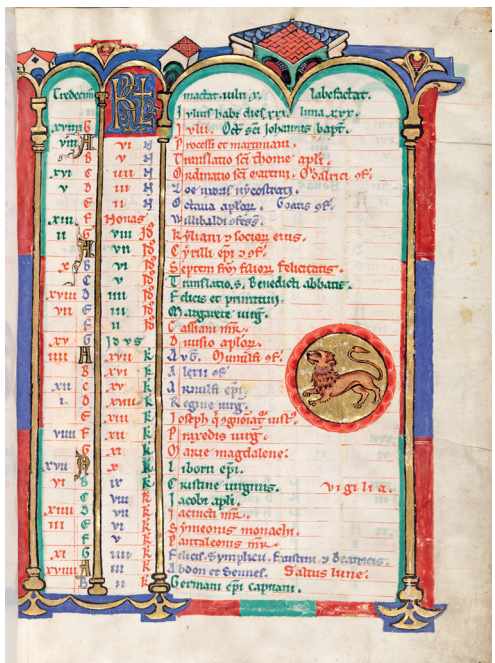 Tredecim mactat iulii x. labefactat.
KL Iulius habet dies xxxi. luna xxx.
xviiii G Iulii. Oct sci Iohannis bapt.
viii A vi N Processi et martiniani.
B v N Translatio sci thome apli.
xvi C iiii N Ordinatio sci martini. Odalrici
v D iii N
E ii N Octava aplor.
xiii F Nonas Willibaldi
ii G viii Id Kyliani et socior eius.
A vii Id Cyrilli epi
x B vi Id Septem felicitatis.
C v Id Translatio s. Benedicti abbatis.
xviii D iiii Id Felicis et primitivi.
vii E iii Id Margarete virg.
F ii Id Cassiani mr.
xv G Idus Divisio aplor.
iiii A xvii k Aug.
B xvi k Alexii
xii C xv k Arnulfi epi.
i. D xiiii k Regine virg.
E xiii k Ioseph
viiii F xii k Praxedis virg.
G xi k Marie magdalene.
xvii A x k Liborii epi.
vi B ix k Cristine virginis. Vigilia.
C viii k Iacobi apli.
xiiii D vii k Iacincti mr.
iii E vi k Symeonis monachi.
F v k Pantaleonis mr.
xi G iiii k Felicis. Symplicii. Faustini. et Beatricis.
xviiii A iii k Abdon et Sennes. Saltus lune.
B ii k Germani epi capuani.